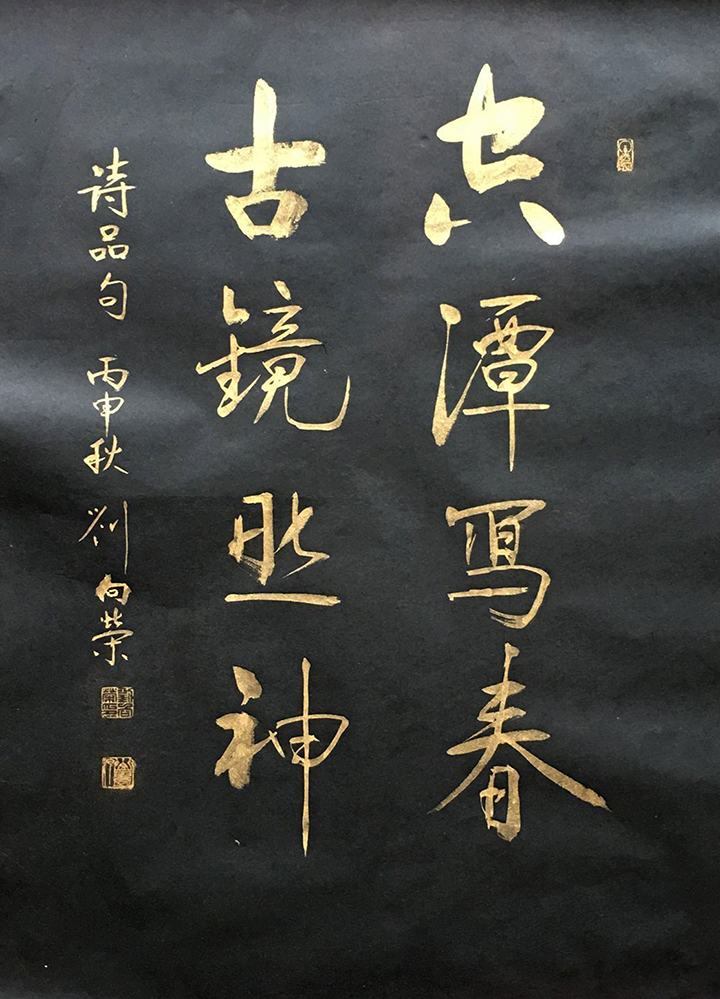 空潭寫春
古鏡照神
詩品句 丙申秋 劉向榮